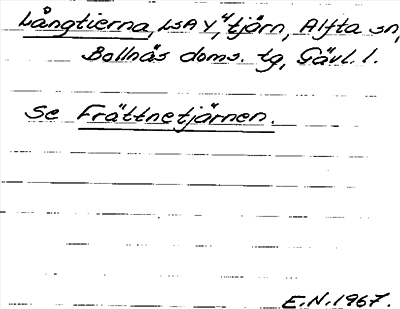 Långtierna, LSA Y⁴, tjärn, Alfta sn,
Bollnäs doms. tg, Gävl. l.
Se Frättnetjärnen.
E.N. 1967.